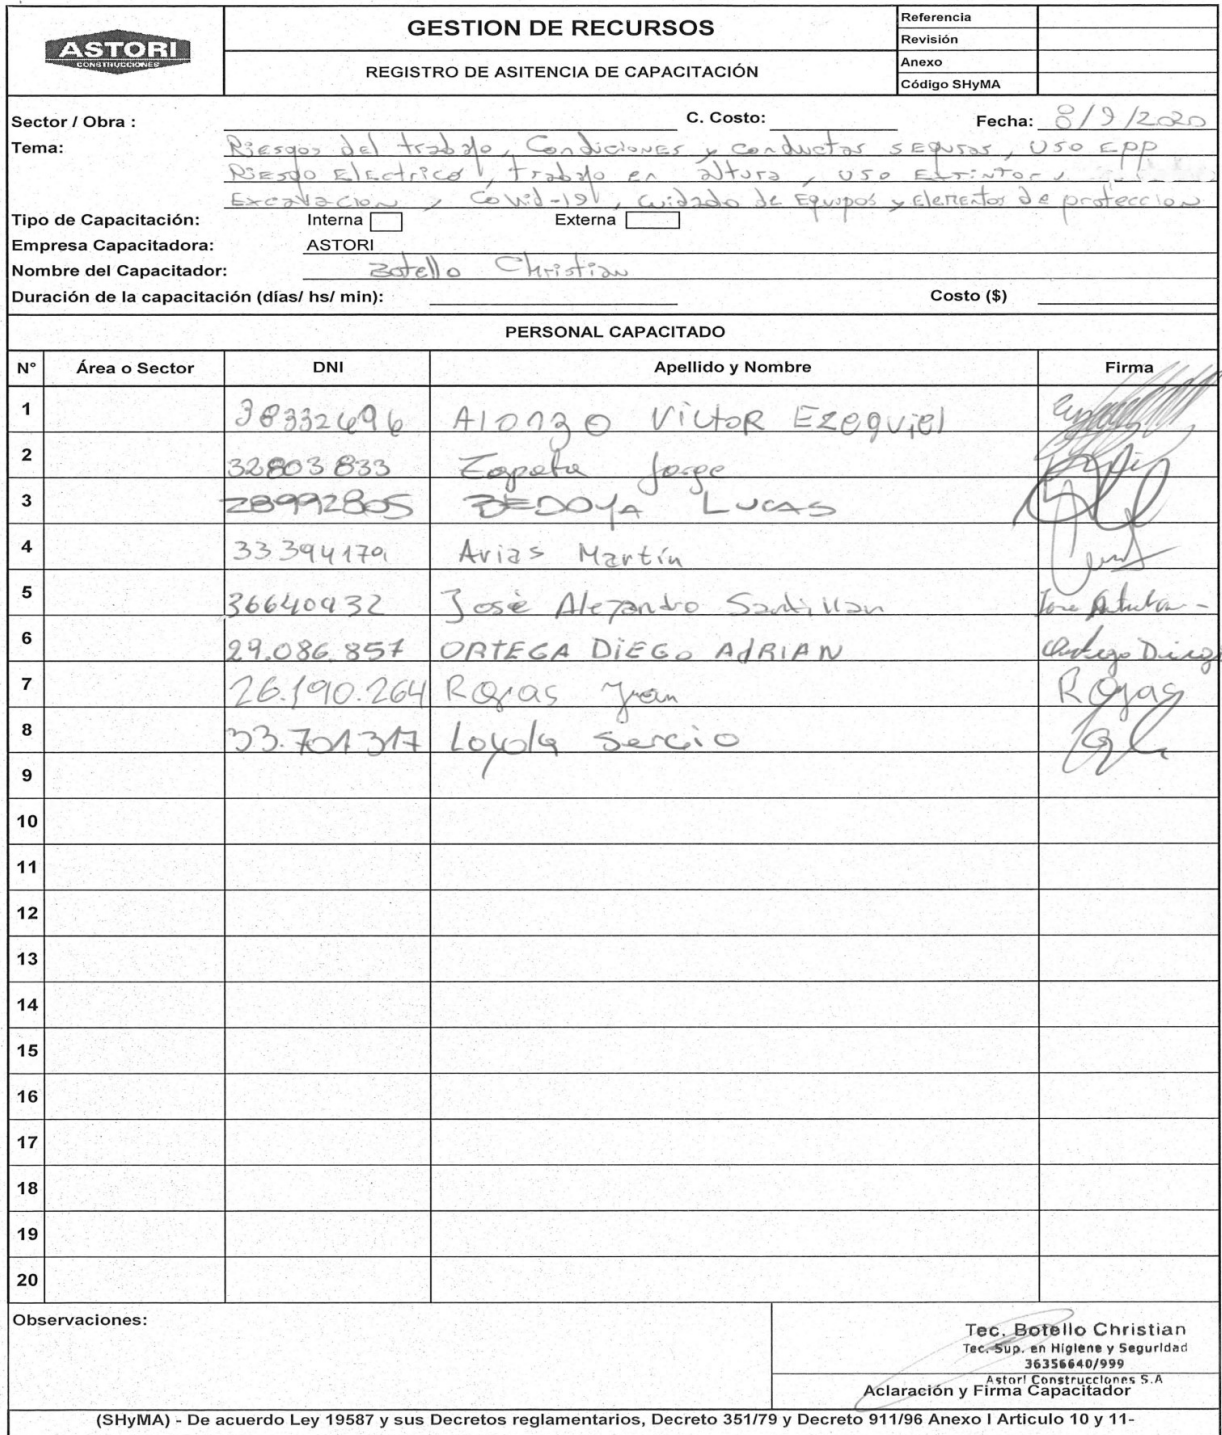 ASTORI
CONSTRUCCIONES
GESTION DE RECURSOS
REGISTRO DE ASITENCIA DE CAPACITACIÓN
Referencia
Revisión
Anexo
Código SHyMA
Sector / Obra :
C. Costo:
Fecha: 8/9/2020
Tema: Riesgos del trabajo, Condiciones y conductas seguras, USO EPP
Riesgo Electrico, trabajo en altura, USO Extintor,
Excavacion, Covid-19, cuidado de Equipos y Elementos de proteccion
Tipo de Capacitación: Interna Externa
Empresa Capacitadora: ASTORI
Nombre del Capacitador: Botello Christian
Duración de la capacitación (días/ hs/ min): Costo ($)
PERSONAL CAPACITADO
N° Área o Sector DNI Apellido y Nombre Firma
1 38332696 Alonzo Victor Ezequiel
2 32803833 Zapata Jorge
3 28992805 BEDOYA LUCAS
4 33394179 Arias Martín
5 36640932 José Alejandro Santillan
6 29.086.857 ORTEGA DiEGo AdRIAN Ortega Diego
7 26.190.264 Rojas Juan Rojas
8 33.701317 Loyola Sergio
9
10
11
12
13
14
15
16
17
18
19
20
Observaciones:
Tec. Botello Christian
Tec. Sup. en Higiene y Seguridad
36356640/999
Astori Construcciones S.A
Aclaración y Firma Capacitador
(SHyMA) - De acuerdo Ley 19587 y sus Decretos reglamentarios, Decreto 351/79 y Decreto 911/96 Anexo I Articulo 10 y 11-